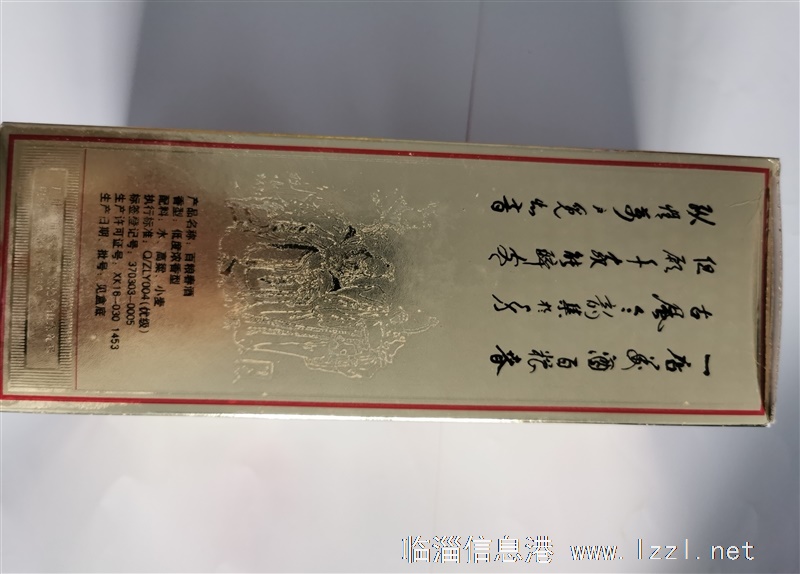 一店美酒百粮春
古风之韵集於身
但愿千家能醉客
万户
产品名称：百粮春酒
香型：低度浓香型
配料：水、高粱、小麦
执行标准：Q/ZLY004(优级)
标签登记号：370303-0005
生产许可证号：XK16-030 1453
生产日期、批号：见盒底
临淄信息港 www.lzzl.net